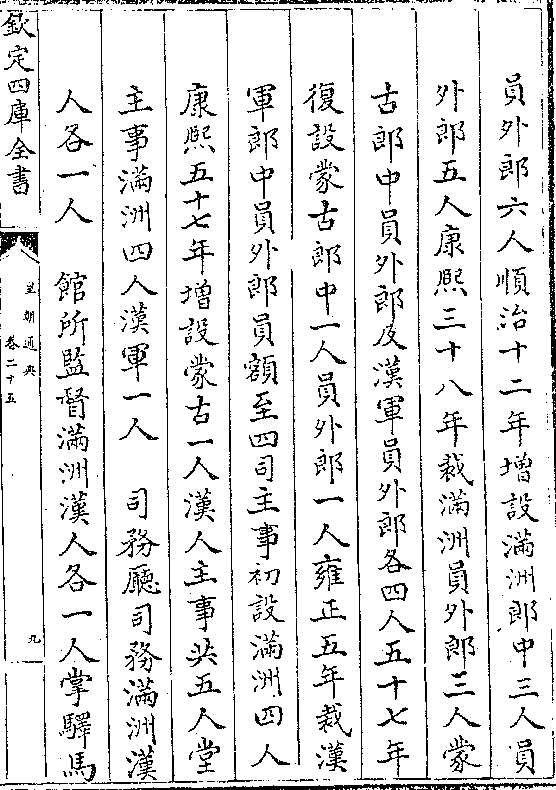 員外郎六人順治十二年增設滿洲郎中三人員
外郎五人康熙三十八年裁滿洲員外郎三人蒙
古郎中員外郎及漢軍員外郎各四人五十七年
復設蒙古郎中一人員外郎一人雍正五年裁漢
軍郎中員外郎員額至四司主事初設滿洲四人
康熙五十七年增設蒙古一人漢人主事共五人堂
主事滿洲四人漢軍一人　司務廳司務滿洲漢
人各一人　館所監督滿洲漢人各一人掌驛馬
欽定四庫全書
皇朝通典
卷二十五
九